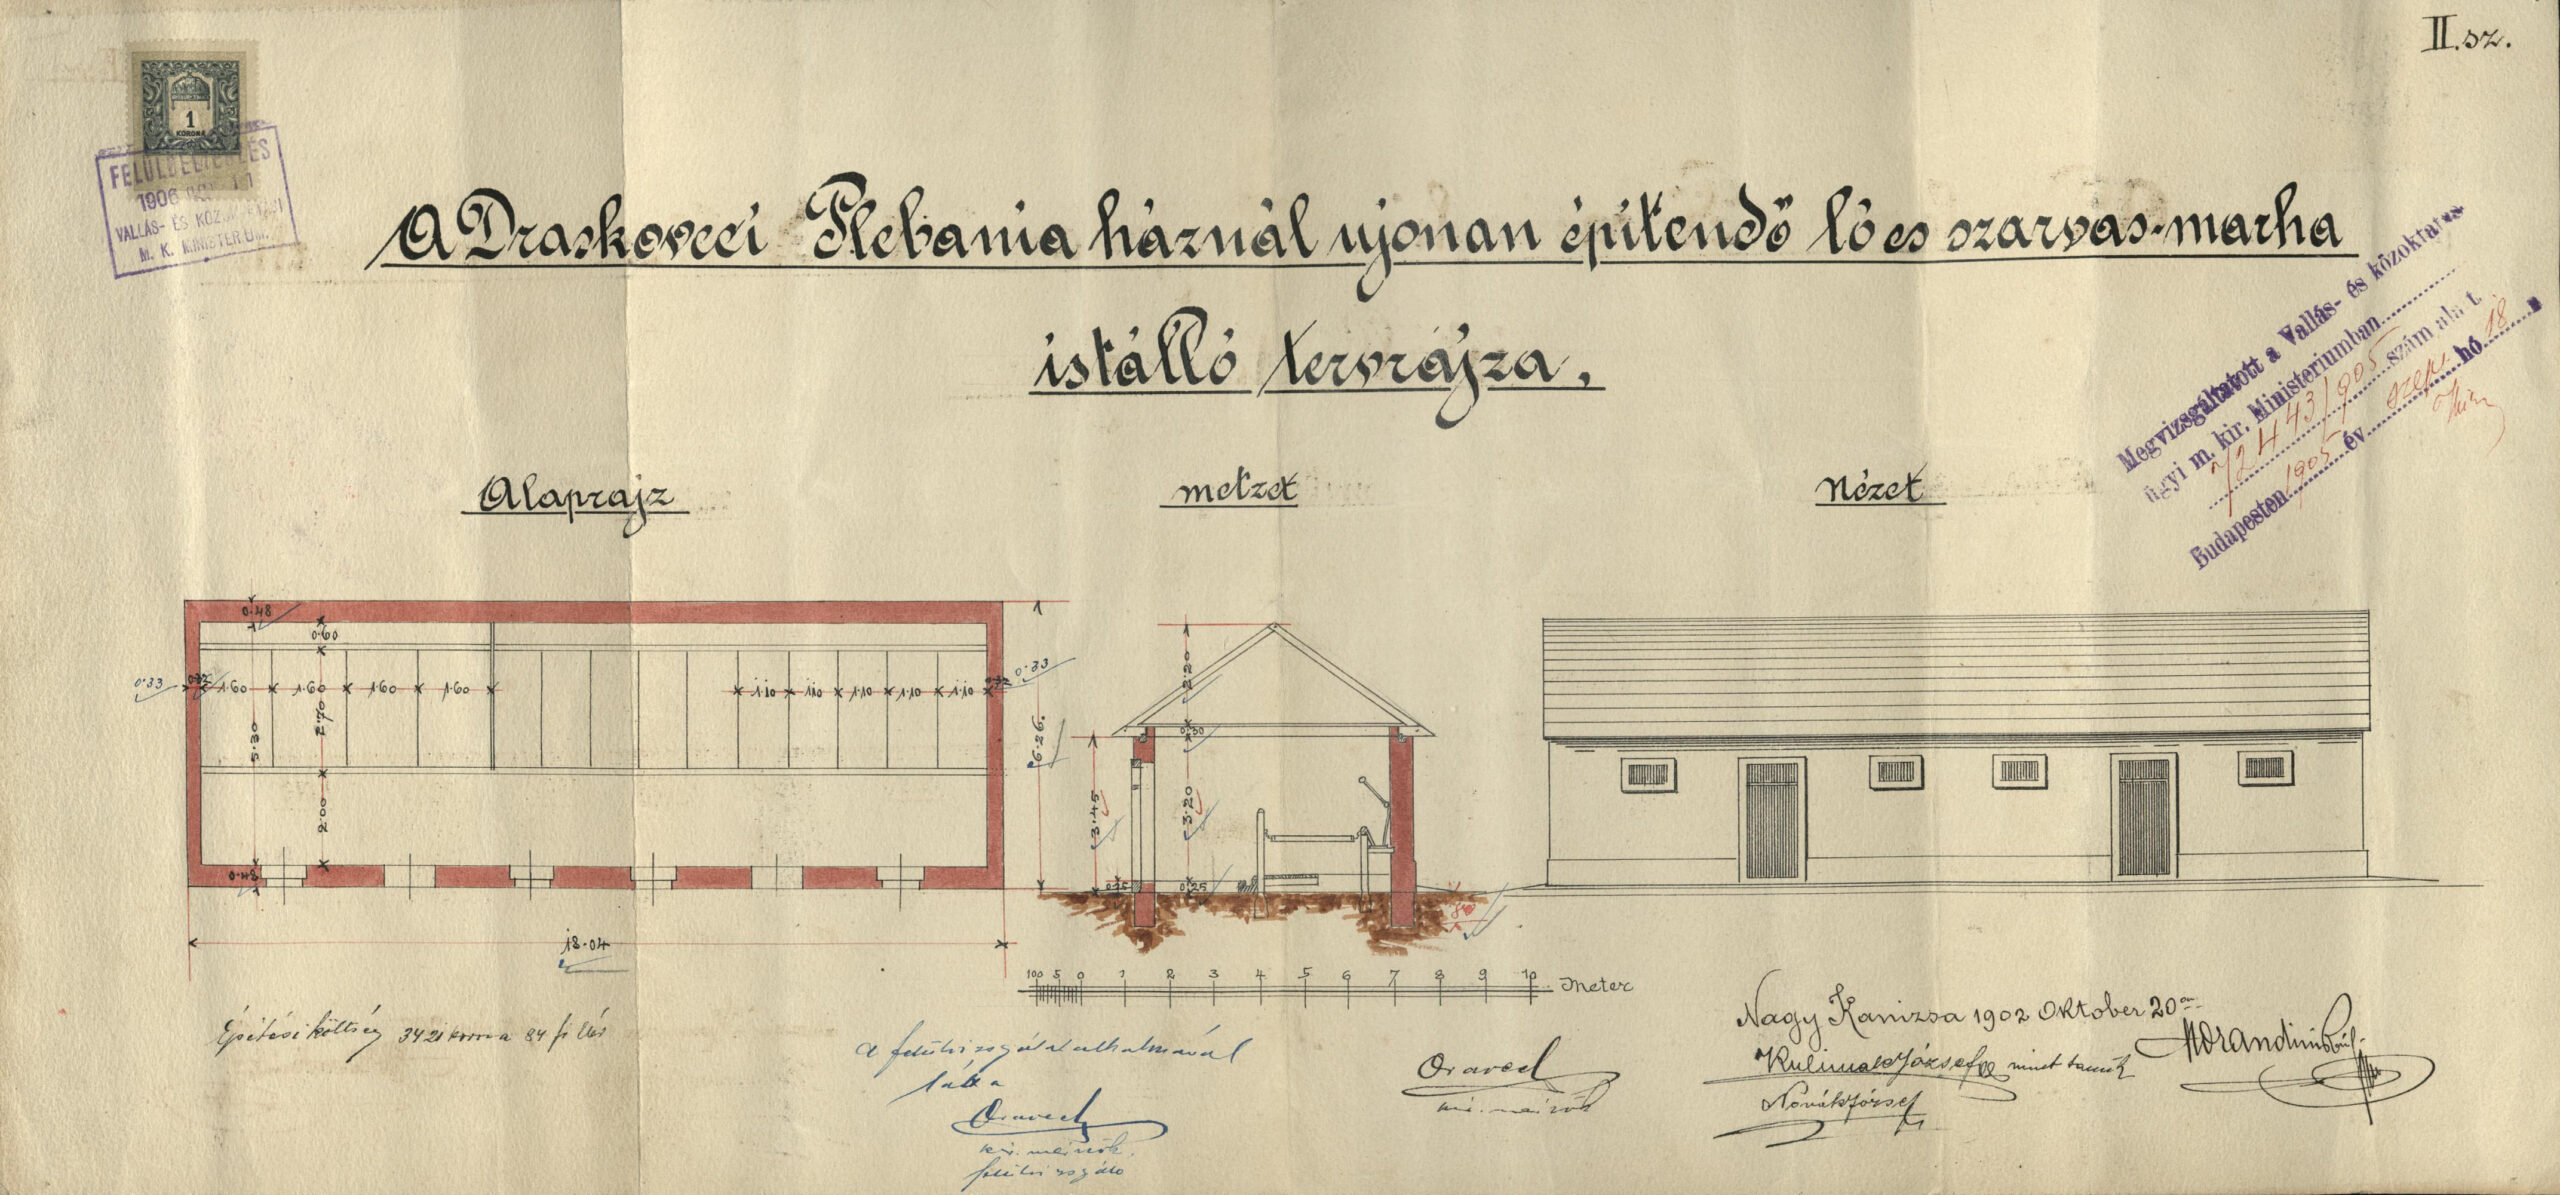 II. sz.
1
KORONA
FELÜLBÉLYEGZÉS
1906
VALLÁS- ÉS KÖZOKT
M. K. MINISTERIUM.
A Draskoveci Plebania háznál ujonan építendő ló es szarvas-marha
istálló tervrajza.
Megvizsgáltatott a Vallás- és közoktatás
ügyi m. kir. Ministeriumban
72443/905 szám alatt.
Budapesten 1905 év szept. hó 18 n
Alaprajz
metzet
Nézet
0·48
0·60
0·33
0·32
1·60
1·60
1·60
1·60
1·10
1·10
1·10
1·10
1·10
0·32
0·33
2·70
5·30
2·00
0·48
6·26.
18·04
2·20
0·30
3·45
3·20
0·25
0·25
100 5 0 1 2 3 4 5 6 7 8 9 10 Meter
Építési költség 3421 korona 84 fillér
A felülvizsgálat alkalmával
látta
Oravecz
kir. mérnök.
felülvizsgáló
Oravecz
kir. mérnök
Nagy Kanizsa 1902 Oktober 20án
József mint tanuk
Novák József
Morandini